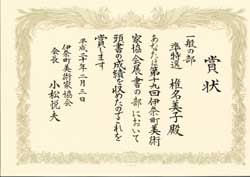 賞状
一般の部
準特選 椎名美子殿
あなたは第十九回伊奈町美術
家協会展書の部において
頭書の成績を収めたのでこれを
賞します
平成二十年二月三日
伊奈町美術家協会
会長 小松悦夫